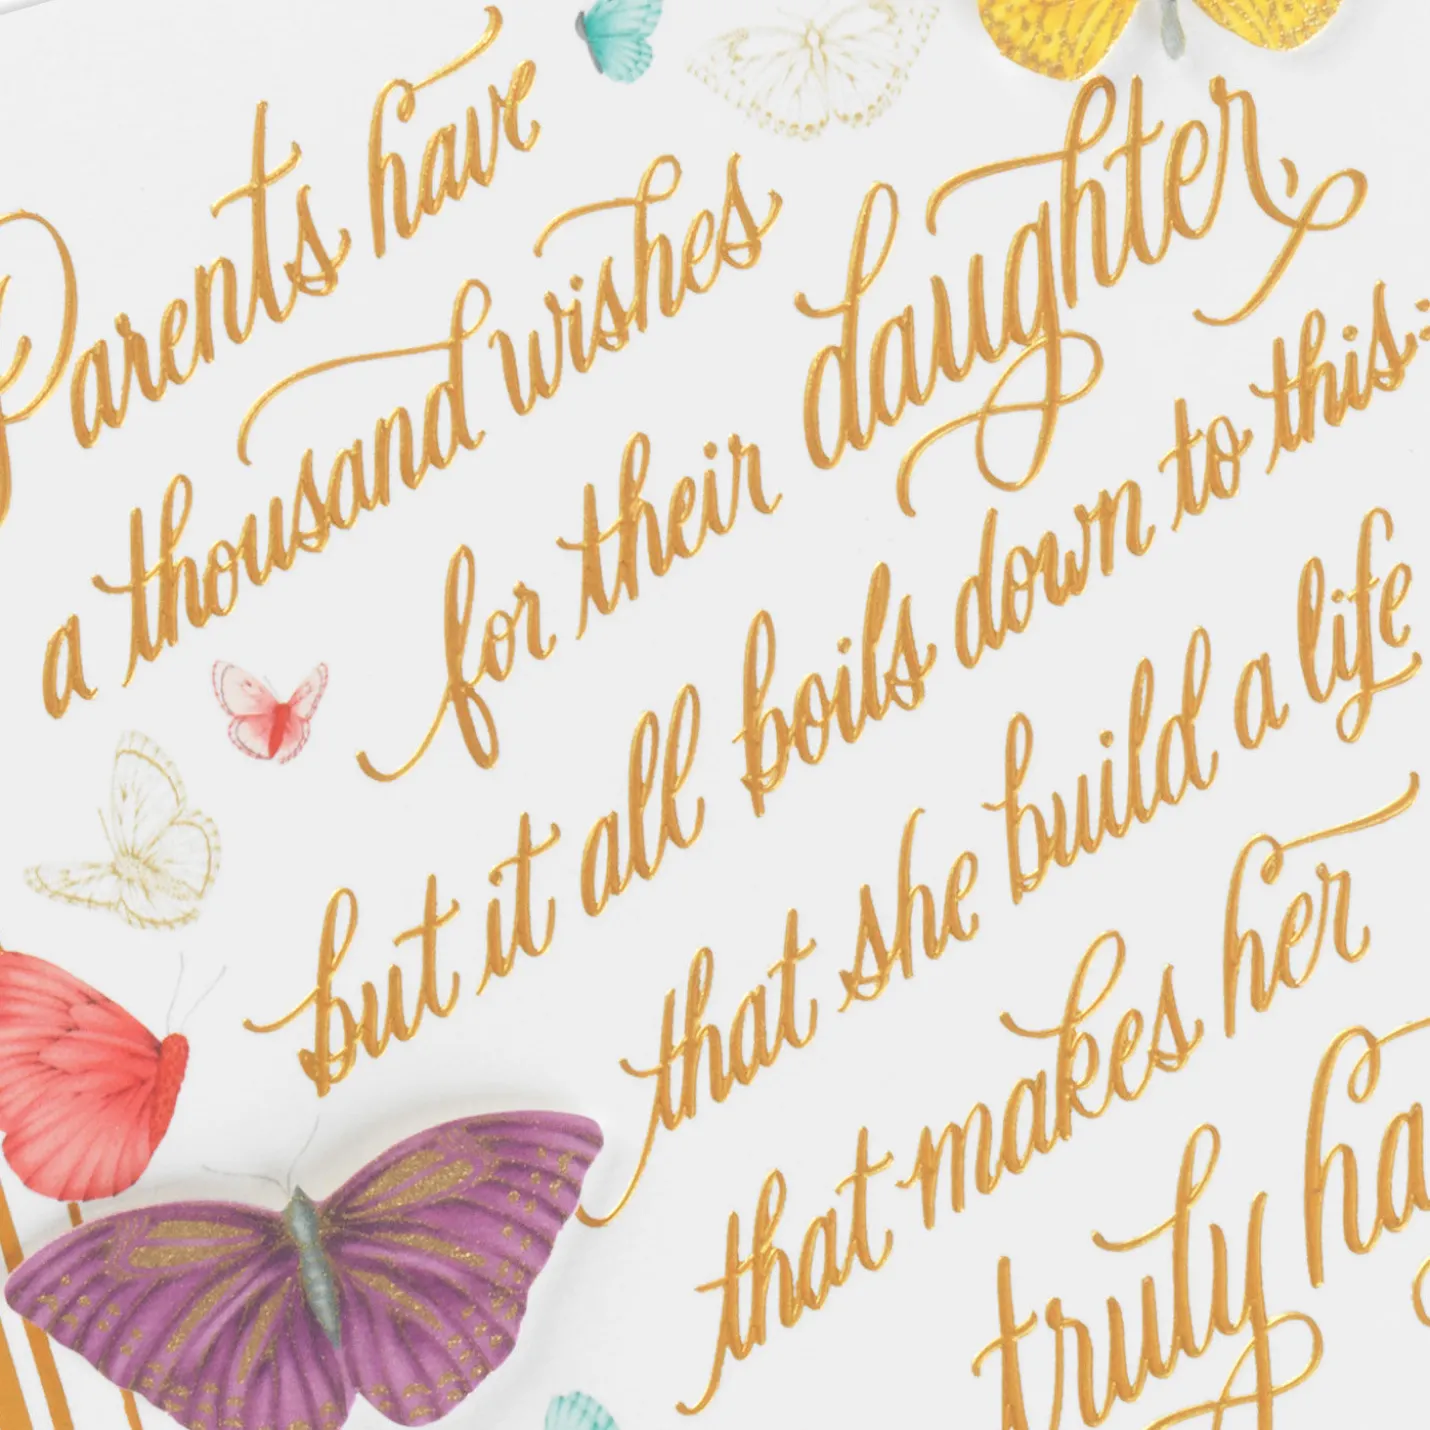 Parents have
a thousand wishes
for their daughter,
but it all boils down to this:
that she build a life
that makes her
truly ha